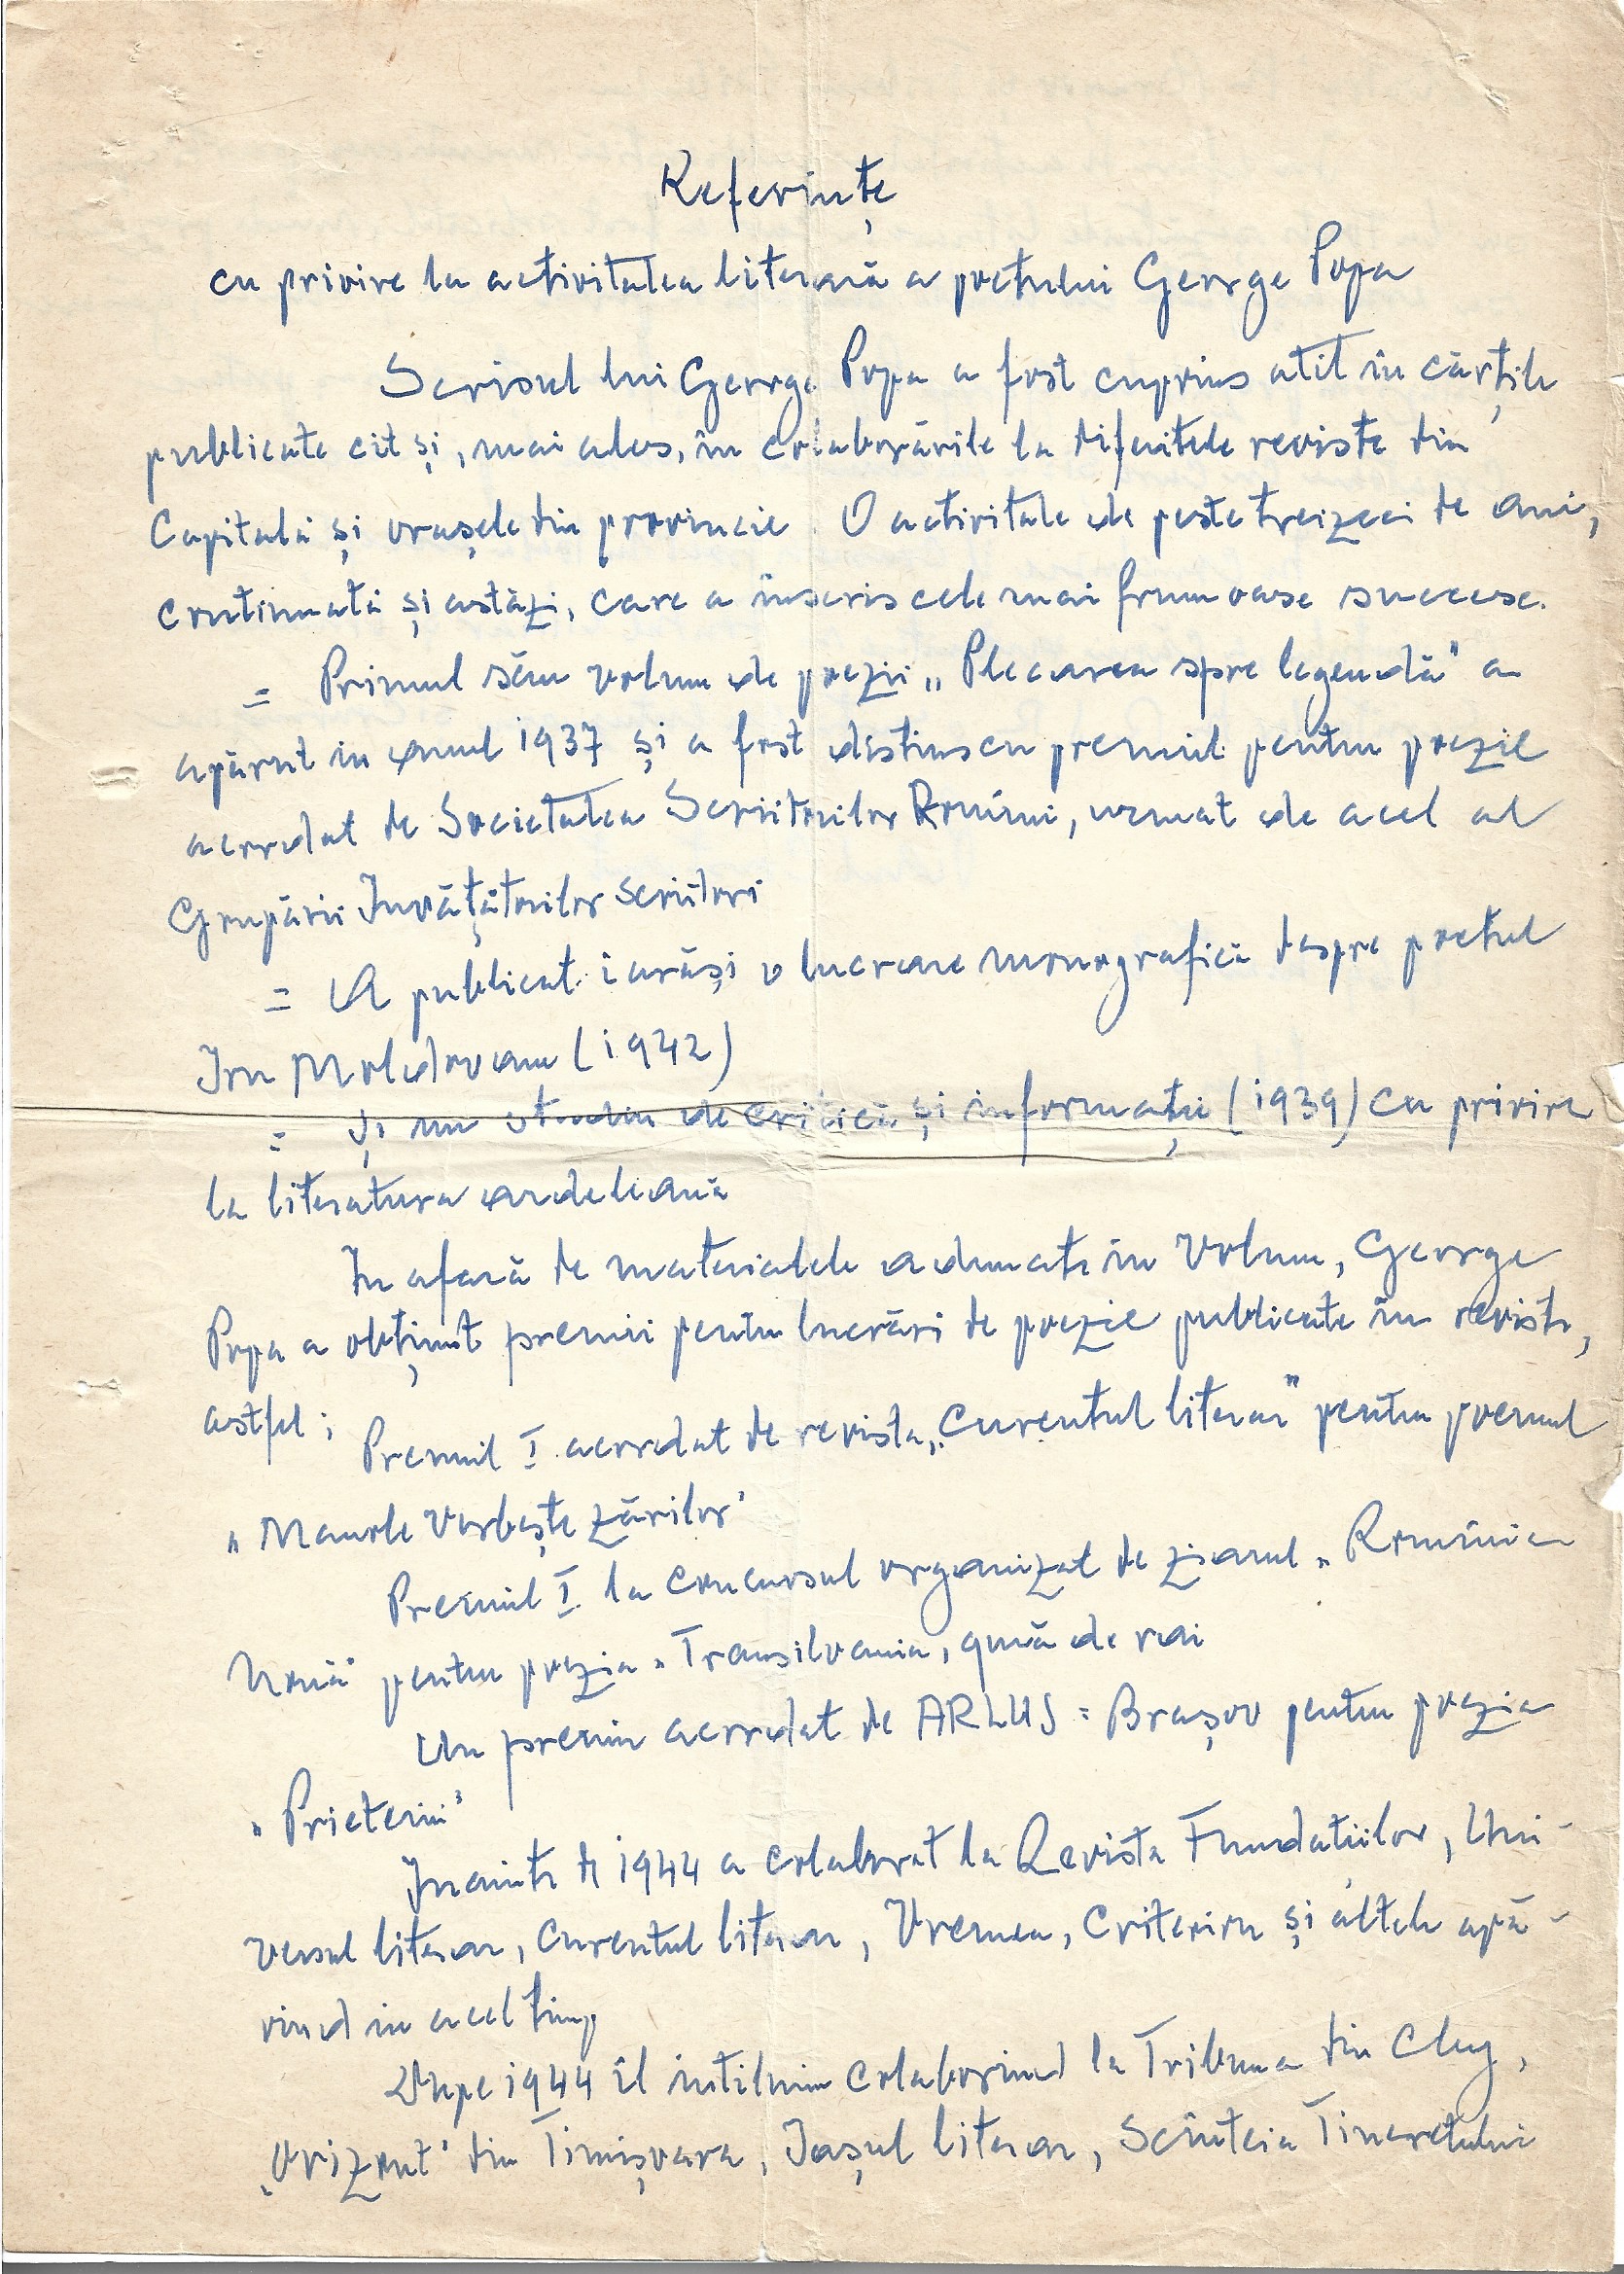 Referințe
cu privire la activitatea literară a poetului George Popa
Scrisul lui George Popa a fost cuprins atît în cărțile
publicate cît și, mai ales, în colaborările la diferitele reviste din
Capitală și orașele din provincie. O activitate de peste treizeci de ani,
continuată și astăzi, care a înscris cele mai frumoase succese.
= Primul său volum de poezii „Plecarea spre legendă" a
apărut in anul 1937 și a fost distins cu premiul pentru poezie
acordat de Societatea Scriitorilor Romîni, urmat de acel al
Grupării Învățătorilor scriitori
= A publicat iarăși o lucrare monografică despre poetul
Ion Moldoveanu (1942)
= și un studiu de critică și informație (1939) cu privire
la literatura ardeleană
În afară de materialele adunate în volum, George
Popa a obținut premii pentru lucrări de poezie publicate în reviste,
astfel:
Premiul I acordat de revista „Curentul literar" pentru poemul
„Marile vorbește zărilor"
Premiul I la concursul organizat de ziarul „Romînia
Nouă" pentru poezia „Transilvania, gură de rai
Un premiu acordat de ARLUS = Brașov pentru poezia
„Prietenii"
Inainte de 1944 a colaborat la Revista Fundațiilor, Uni-
versul literar, Curentul literar, Vremea, Criterion și altele apă-
rînd in acel timp
După 1944 îl intîlnim colaborînd la Tribuna din Cluj,
„Orizont" din Timișoara, Iașul literar, Scînteia Tineretului